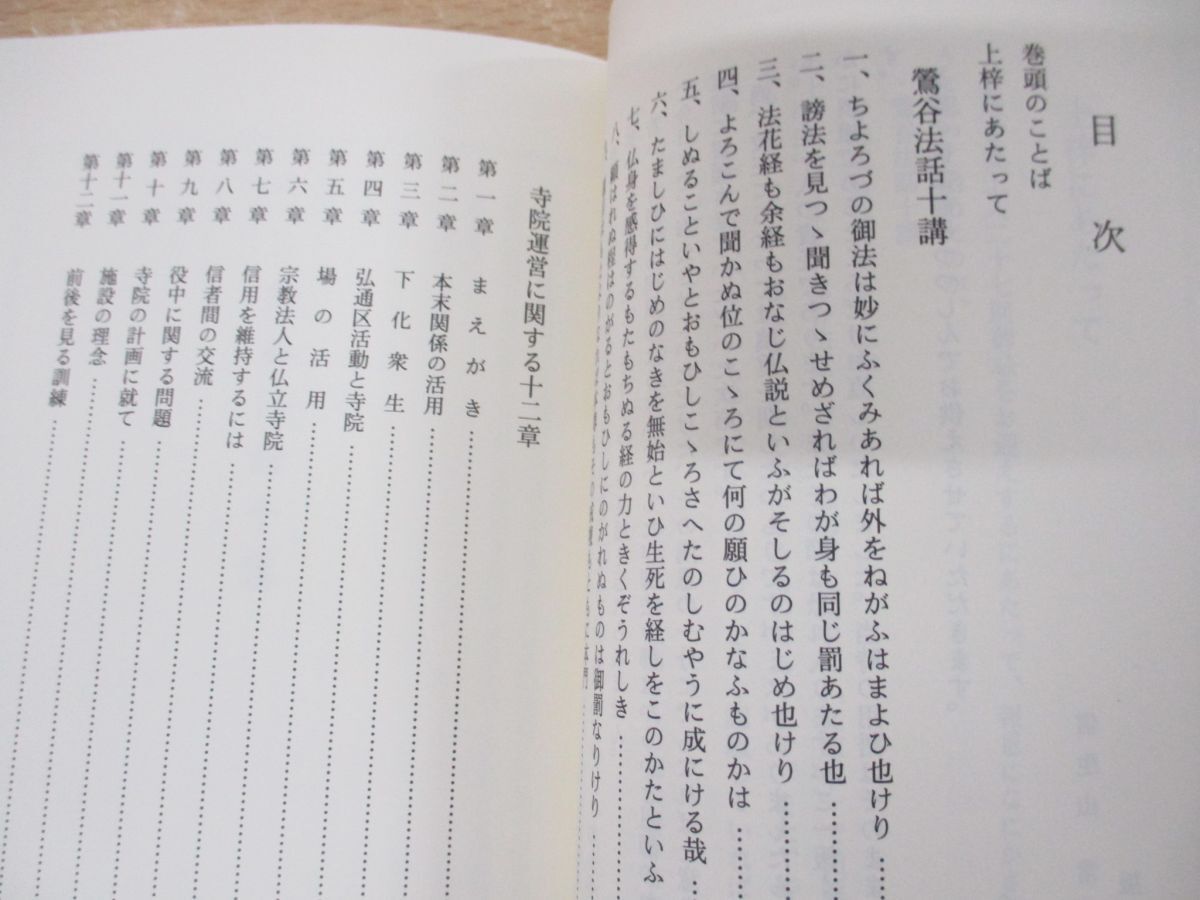 目次
巻頭のことば
上梓にあたって
鶯谷法話十講
一、ちよろづの御法は妙にふくみあれば外をねがふはまよひ也けり
二、謗法を見つゝ聞きつゝせめざればわが身も同じ罰あたる也
三、法花経も余経もおなじ仏説といふがそしるのはじめ也けり
四、よろこんで聞かぬ位のこゝろにて何の願ひのかなふものかは
五、しぬることいやとおもひしこゝろさへたのしむやうに成にける哉
六、たましひにはじめのなきを無始といひ生死を経しをこのかたといふ
七、仏身を感得するもたもちぬる経の力ときくぞうれしき
八、願はれぬ程はのがるとおもひしにのがれぬものは御罰なりけり
寺院運営に関する十二章
第一章 まえがき
第二章 本末関係の活用
第三章 下化衆生
第四章 弘通区活動と寺院
第五章 場の活用
第六章 宗教法人と仏立寺院
第七章 信用を維持するには
第八章 信者間の交流
第九章 役中に関する問題
第十章 寺院の計画に就て
第十一章 施設の理念
第十二章 前後を見る訓練